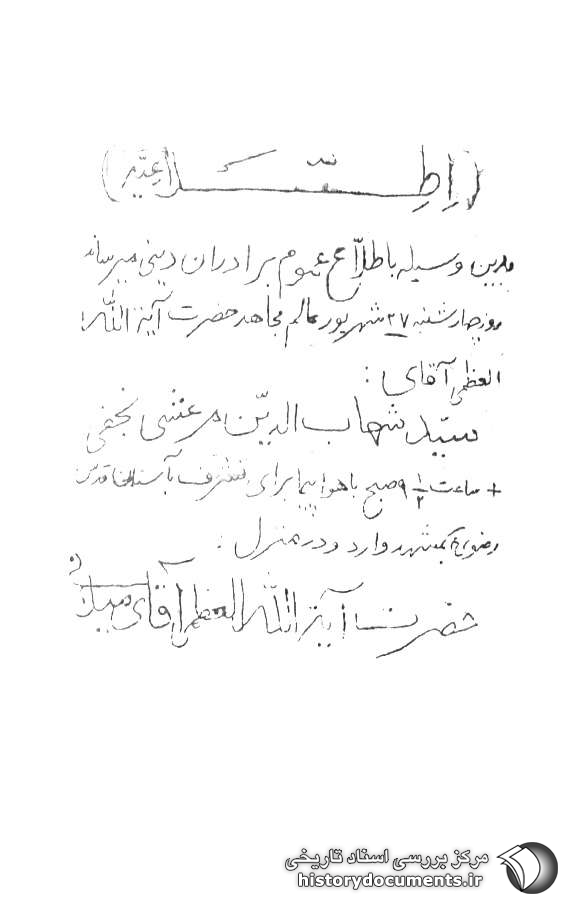 (اِطِّلاعیّه)
بدین وسیله باطلّاع عموم برادران دینی میرساند
روز چهارشنبه ۲۷ شهریور عالم مجاهد حضرت آیة اللّه
العظمی آقای :
سیّد شهاب الدّین مرعشی نجفی
+ ساعت ۹ ۱/۲ صبح با هواپیما برای تشرّف بآستان قدس
رضوی ع بمشهد وارد و در منزل :
حضرت آیة اللّه العظمی آقای میلانی
مرکز بررسی اسناد تاریخی
historydocuments.ir